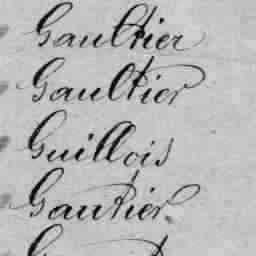 Gaultier
Gaultier
Guillois
Gautier